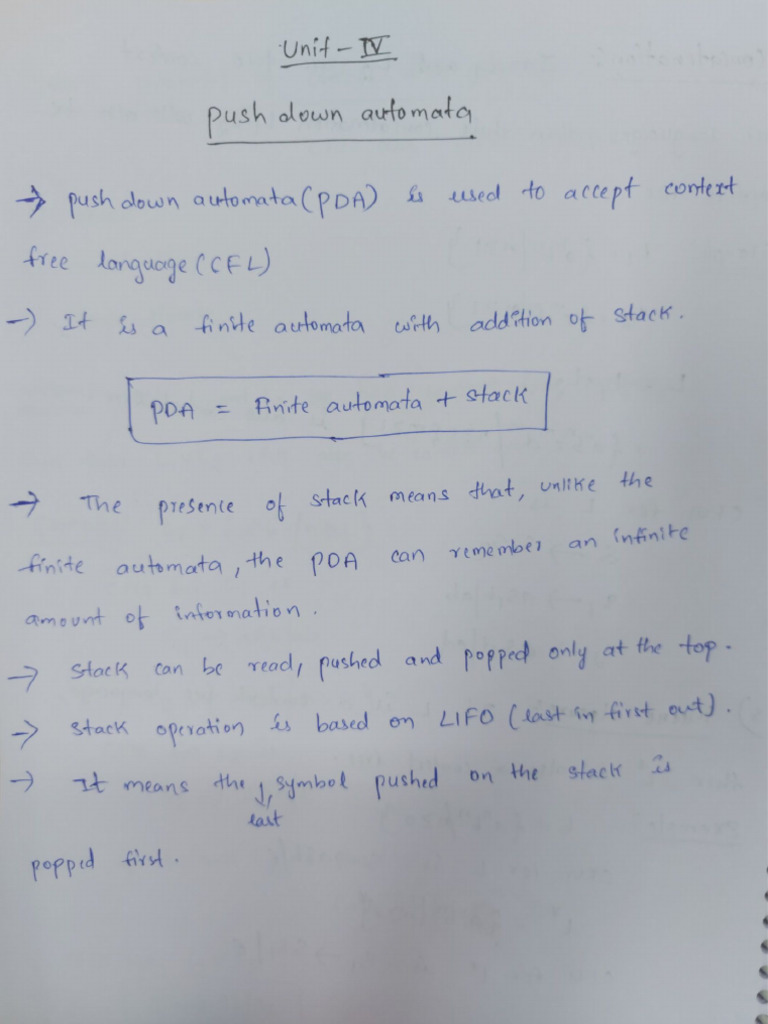 Unit - IV
push down automata
→ push down automata (PDA) is used to accept context
free language (CFL)
→ It is a finite automata with addition of stack.
PDA = Finite automata + stack
→ The presence of stack means that, unlike the
finite automata, the PDA can remember an infinite
amount of information.
→ stack can be read, pushed and popped only at the top.
→ stack operation is based on LIFO (last in first out).
→ It means the symbol pushed on the stack is
last
popped first.